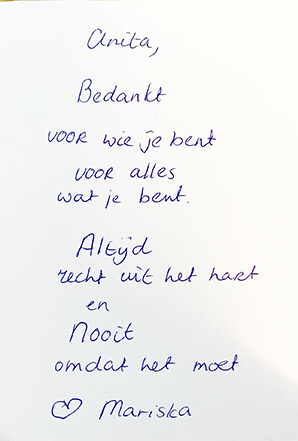 Anita,
Bedankt
voor wie je bent
voor alles
wat je bent.
Altijd
recht uit het hart
en
Nooit
omdat het moet
♡ Mariska